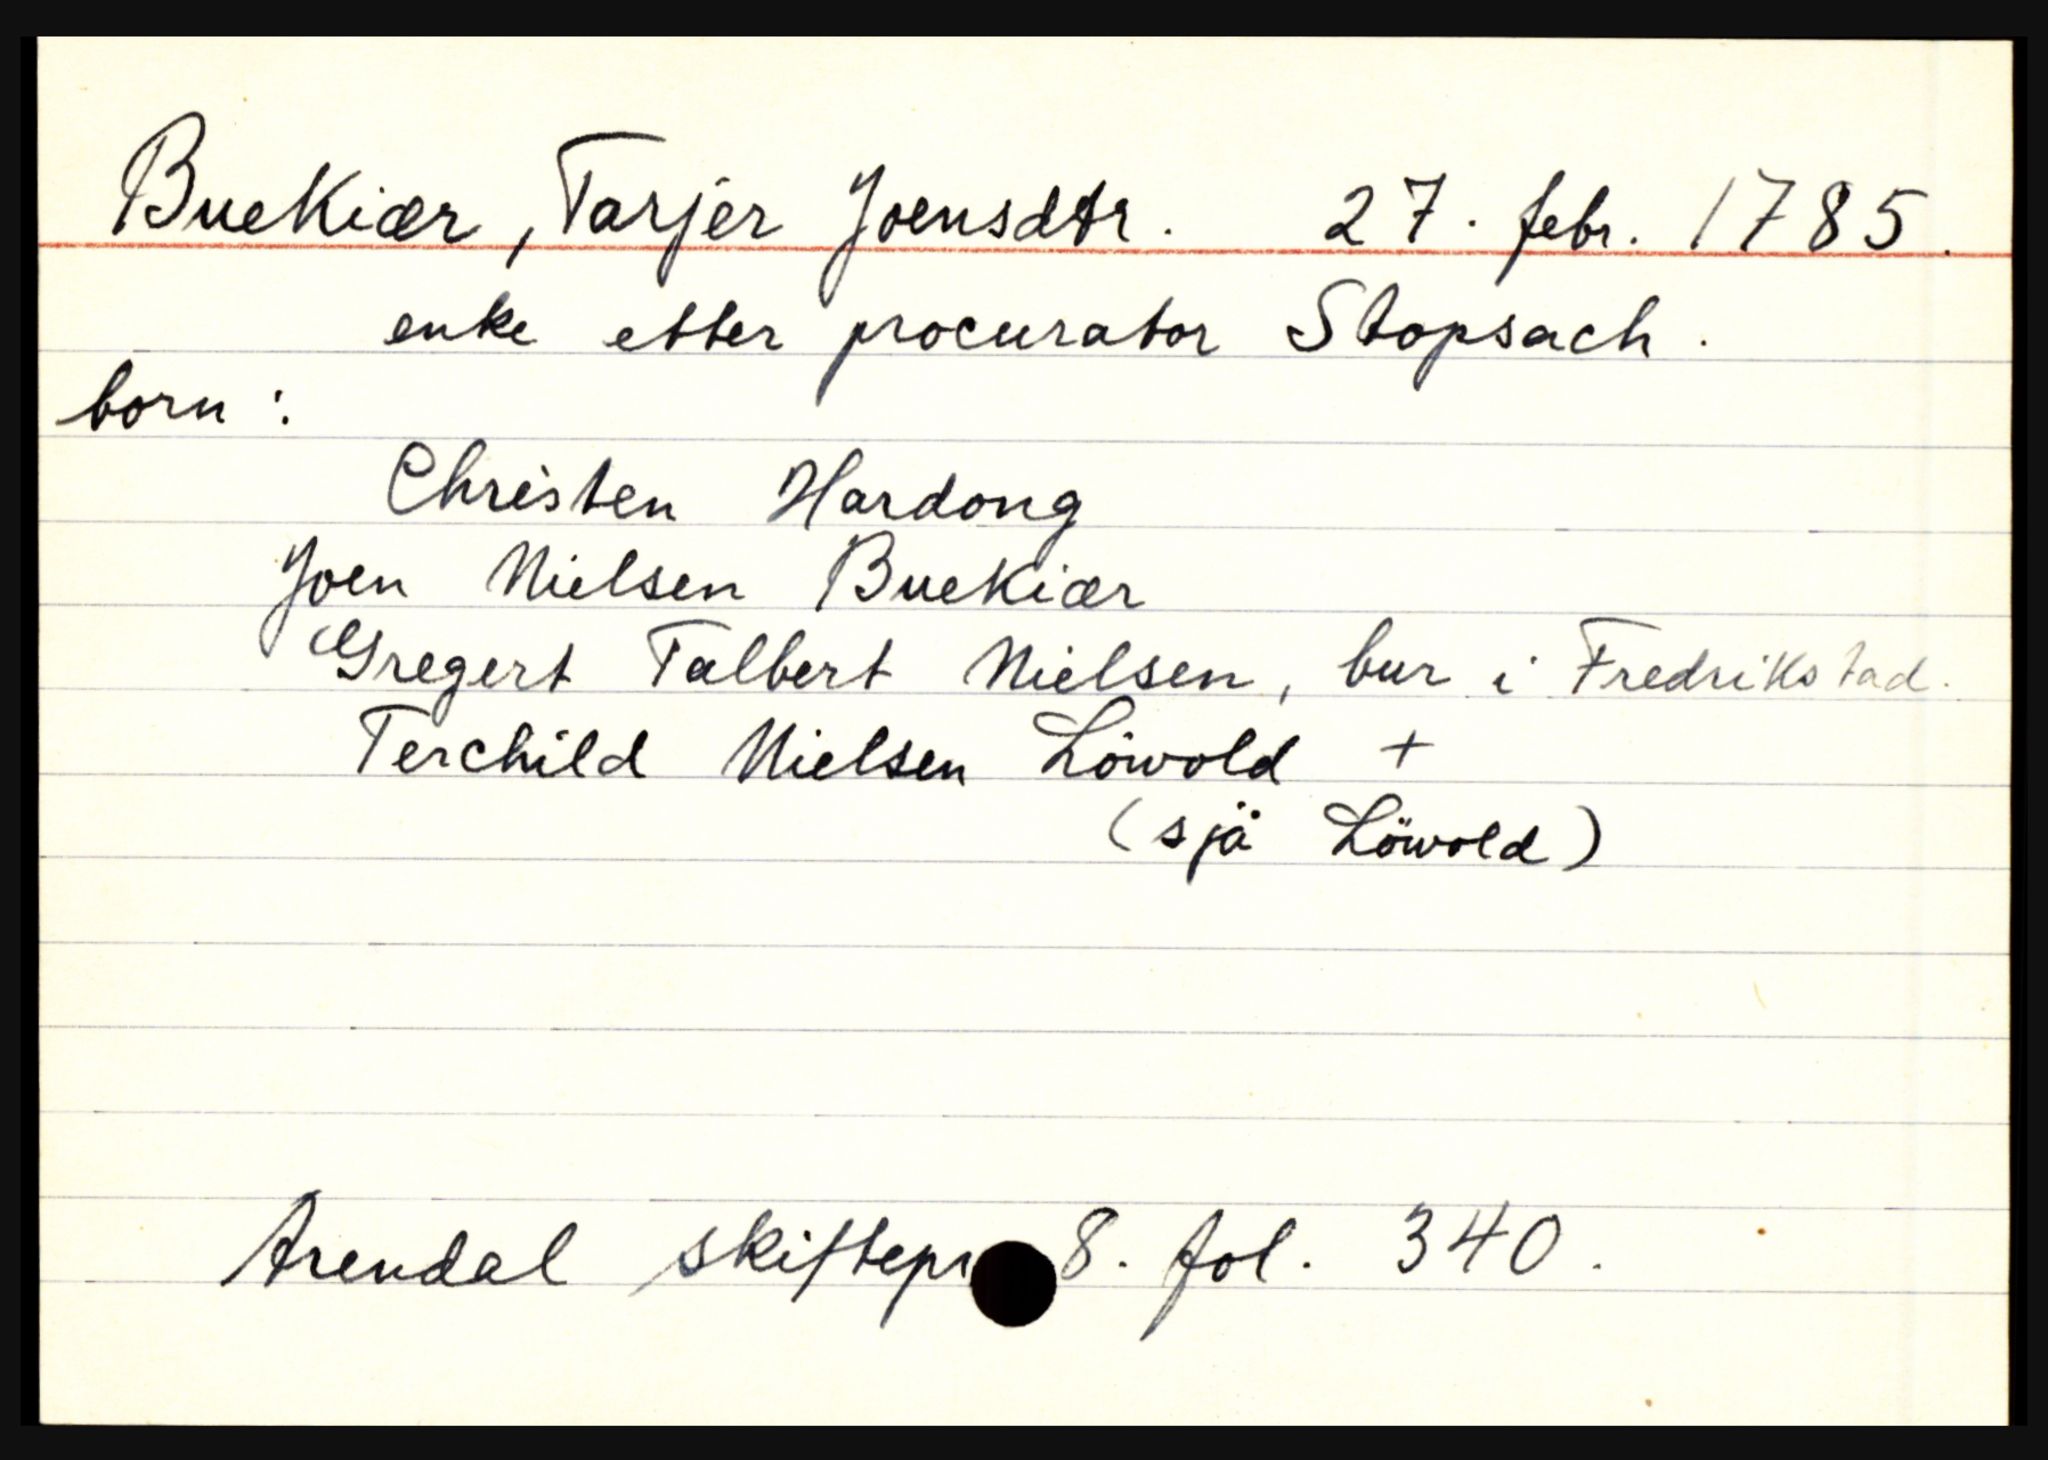 Buekiær, Tarjer Joensdtr. 27. febr. 1785.
enke etter procurator Stopsach.
born:
Christen Hardong
Joen Nielsen Buekiær
Gregert Talbert Nielsen, bur i Fredrikstad.
Terchild Nielsen Löwold +
(sjä Löwold)
Arendal skiftepr 8. fol. 340.